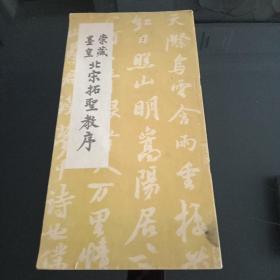 崇藏
墨皇
北宋拓聖教序
天際烏雲含雨重樓
紅日照山明嵩陽居
人萬里情
中詩也僕